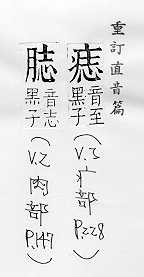 重訂直音篇
痣 音至 黑子 (V.3 疒部 P.228)
音志 黑子 (V.2 肉部 P.147)